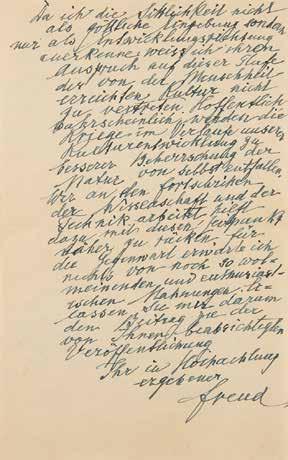 Da ich die Sittlichkeit nicht
als göttliche Eingebung sondern
nur als Entwicklungsrichtung
anerkenne, weiss ich ihren
Anspruch auf dieser Stufe
der von der Menschheit
erreichten Kultur nicht
zu vertreten. Hoffentlich
Wahrscheinlich, werden die
Kriege im Verlauf unserer
Kulturentwicklung zu
besserer Beherrschung der
Natur von selbst entfallen.
Wer an den Fortschritten
der Wissenschaft und der
Technik arbeitet hilft
dazu mit diesen Zeitpunkt
näher zu rücken. Für
die Gegenwart erwarte ich
nichts von noch so wol-
meinenden und enthusiast-
ischen Mahnungen. Er-
lassen Sie mir darum
den Beitrag zu der
von Ihnen beabsichtigten
Veröffentlichung
Ihr in Hochachtung
ergebener
Freud